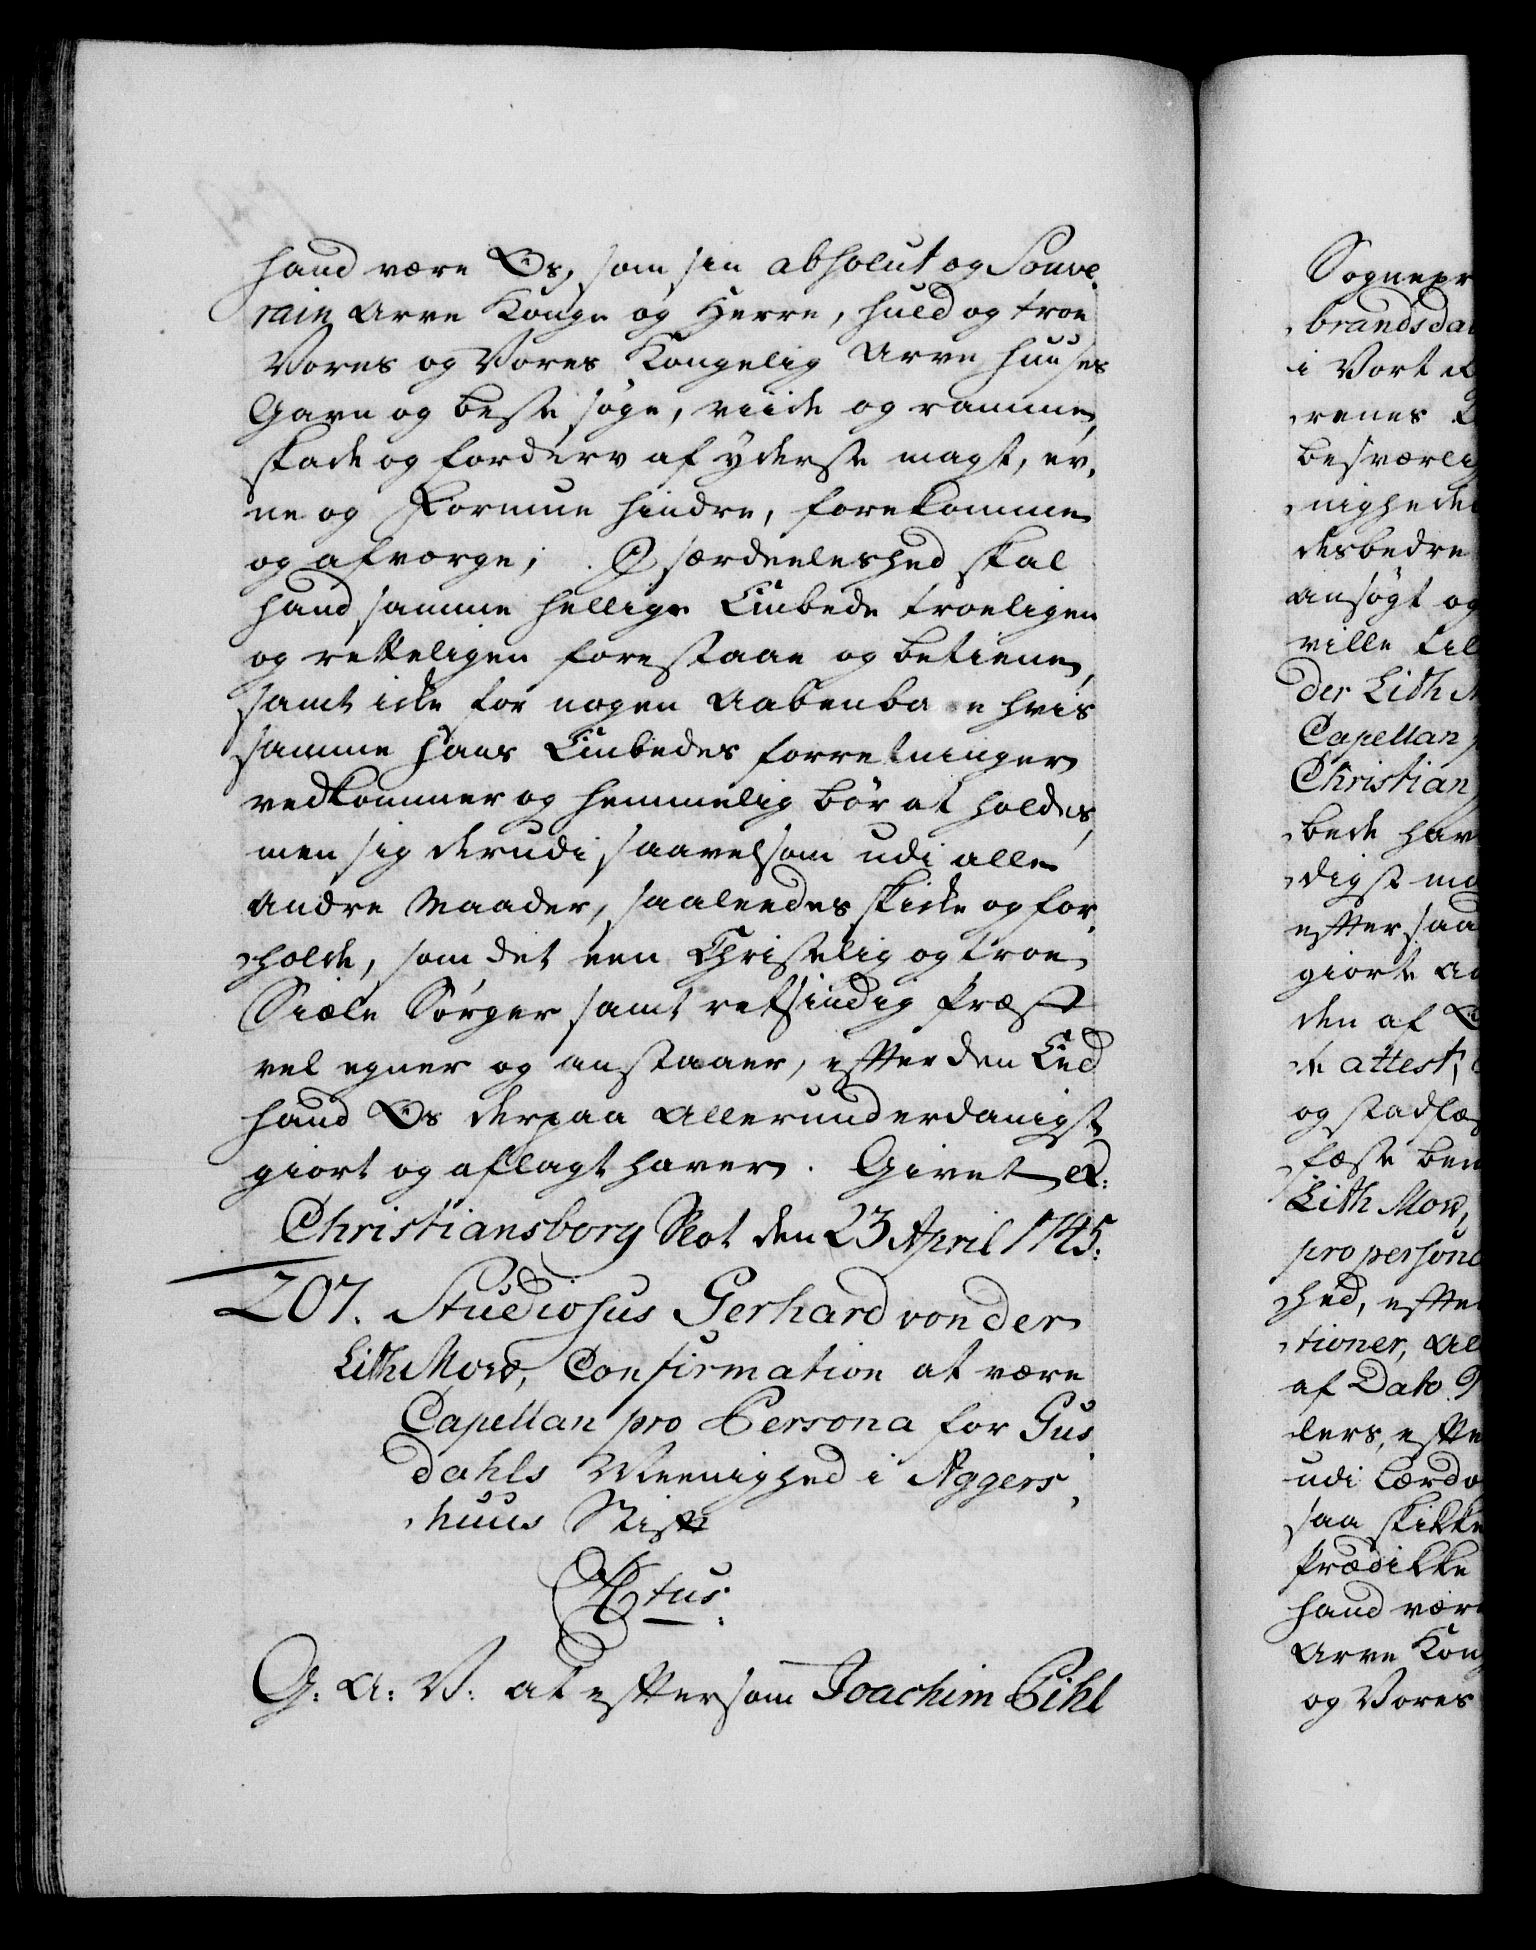 hand være Os, som sin absolut og Souve-
rain Arve Konge og Herre, huld og troe
Vores og Vores Kongelig Arve Huuses
Gavn og beste søge, viide og ramme,
skade og forderv af yderste magt, ev-
ne og Formue hindre, forekomme
og afværge; I særdeeleshed skal
hand samme hellige Embede troeligen
og retteligen forestaae og betiene,
samt icke for nogen aabenba e hvis
samme hans Embedes forretninger
vedkommer og hemmelig bør at holdes,
men sig derudi, saavelsom udi alle
andre Maader, saaleedes skicke og for-
holde, som det een Christelig og troe
Siæle Sørger samt retsindig Præst
vel egner og anstaaer, efter den Eed
hand Os derpaa allerunderdanigst
giort og aflagt haver. Givet &:
Christiansborg Slot den 23 April 1745.
207. Studiosus Gerhard von der
Lith Mow, Confirmation at være
Capellan pro Persona for Gus-
dahls Meenighed i Aggers-
huus Stift
Ctus.
G: A: V: at eftersom Joachim Pihl
Sognepr
brandsdal
i Vort
renes
besværlig
nigheder
desbedre
ansøgt og
ville til
der Lith M
Capellan
Christian
bede hav
digst
efter saa
giorte
den af
te attest,
og stadfæ
fæste ben
Lith Mow,
pro persona
hed, efter
tioner, all
af Dato 9
ders, efter
udi Lærdo
saa skikke
Prædikke
hand være
Arve Kong
og Vores